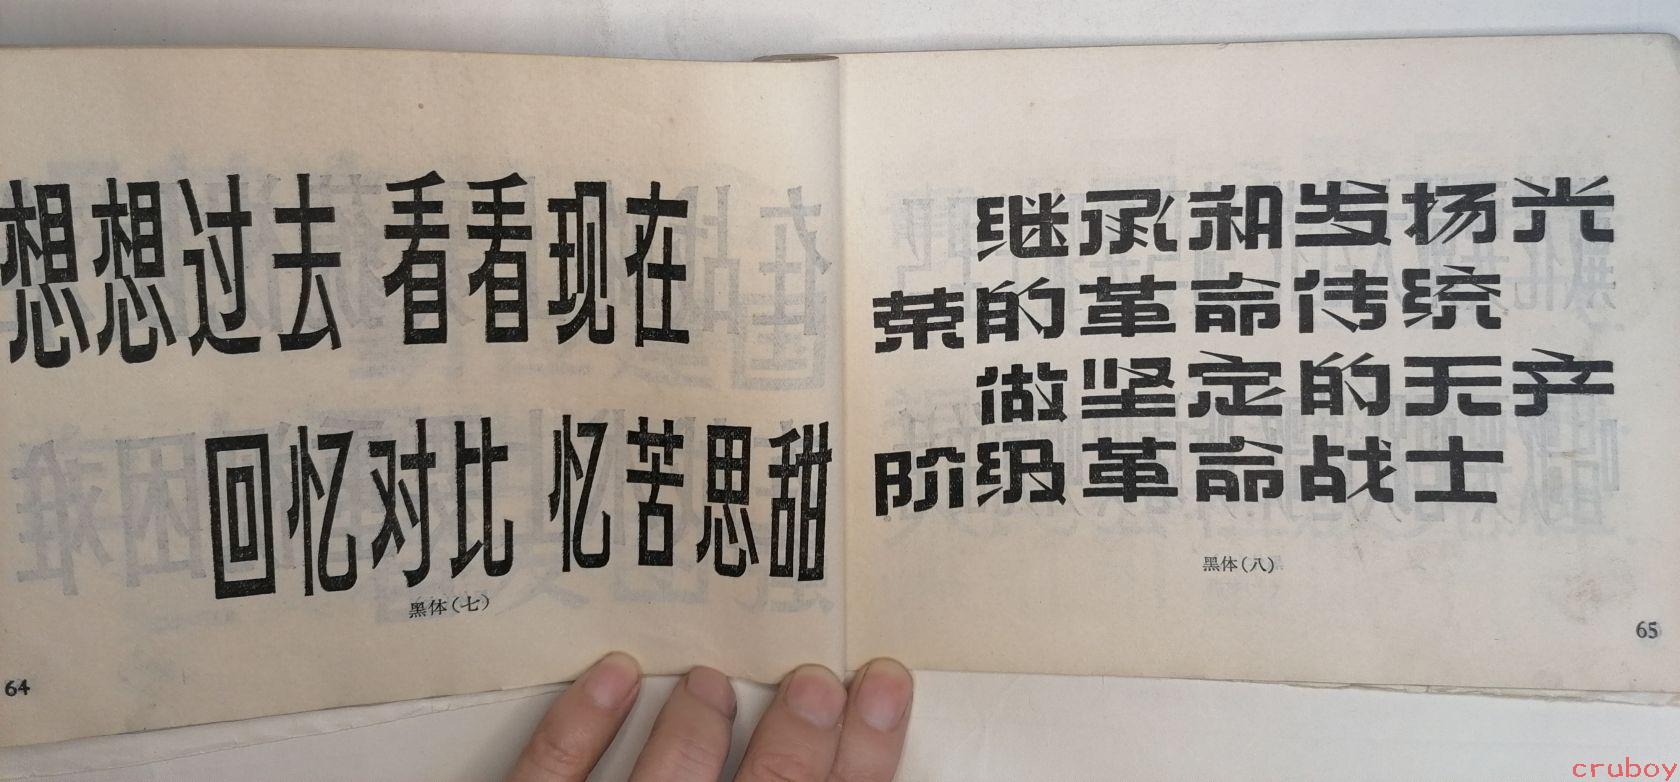 想想过去 看看现在
回忆对比 忆苦思甜
黑体(七)
64
继承和发扬光
荣的革命传统
做坚定的无产
阶级革命战士
黑体(八)
65
cruboy